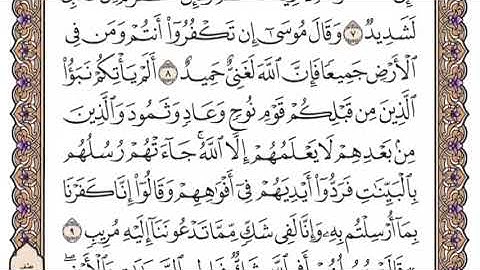 لَشَدِيدٌ ٧ وَقَالَ مُوسَىٰٓ إِن تَكْفُرُوٓا۟ أَنتُمْ وَمَن فِى
ٱلْأَرْضِ جَمِيعًا فَإِنَّ ٱللَّهَ لَغَنِىٌّ حَمِيدٌ ٨ أَلَمْ يَأْتِكُمْ نَبَؤُا۟
ٱلَّذِينَ مِن قَبْلِكُمْ قَوْمِ نُوحٍ وَعَادٍ وَثَمُودَ وَٱلَّذِينَ
مِنۢ بَعْدِهِمْ لَا يَعْلَمُهُمْ إِلَّا ٱللَّهُ ۚ جَآءَتْهُمْ رُسُلُهُم
بِٱلْبَيِّنَٰتِ فَرَدُّوٓا۟ أَيْدِيَهُمْ فِىٓ أَفْوَٰهِهِمْ وَقَالُوٓا۟ إِنَّا كَفَرْنَا
بِمَآ أُرْسِلْتُم بِهِۦ وَإِنَّا لَفِى شَكٍّ مِّمَّا تَدْعُونَنَآ إِلَيْهِ مُرِيبٍ ٩